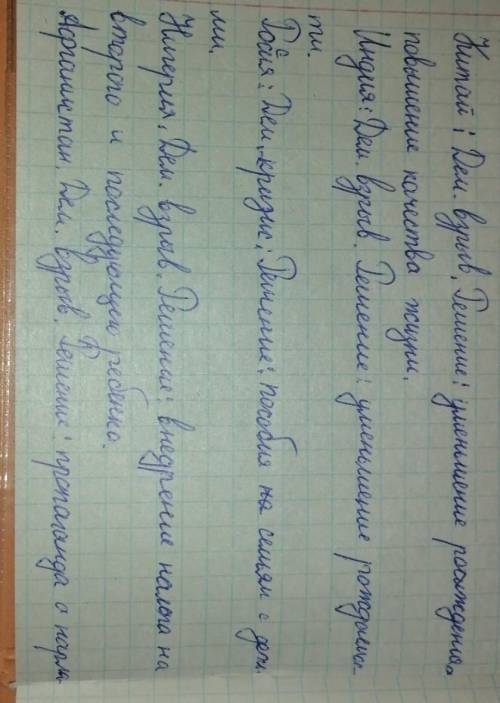 Китай: Дем. взрыв. Решение: уменьшение рождения,
повышение качества жизни.
Индия: Дем. взрыв. Решение: уменьшение рождаемос-
ти.
Россия: Дем. кризис: Решение: пособия на семьям с деть
ми.
Нигерия: Дем. взрыв. Решение: внедрение налога на
второго и последующий ребенка.
Афганистан. Дем. взрыв. Решение: пропаганда о